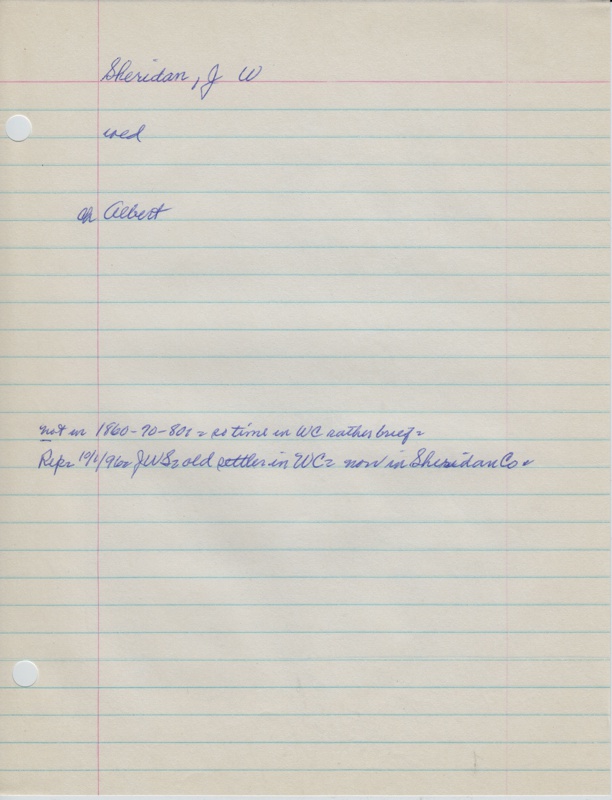 Sheridan, J W
wed
ch Albert
not in 1860-70-80s = so time in WC rather brief =
Rep = 10/1/96 = JWS = old settler in WC = now in Sheridan Co =